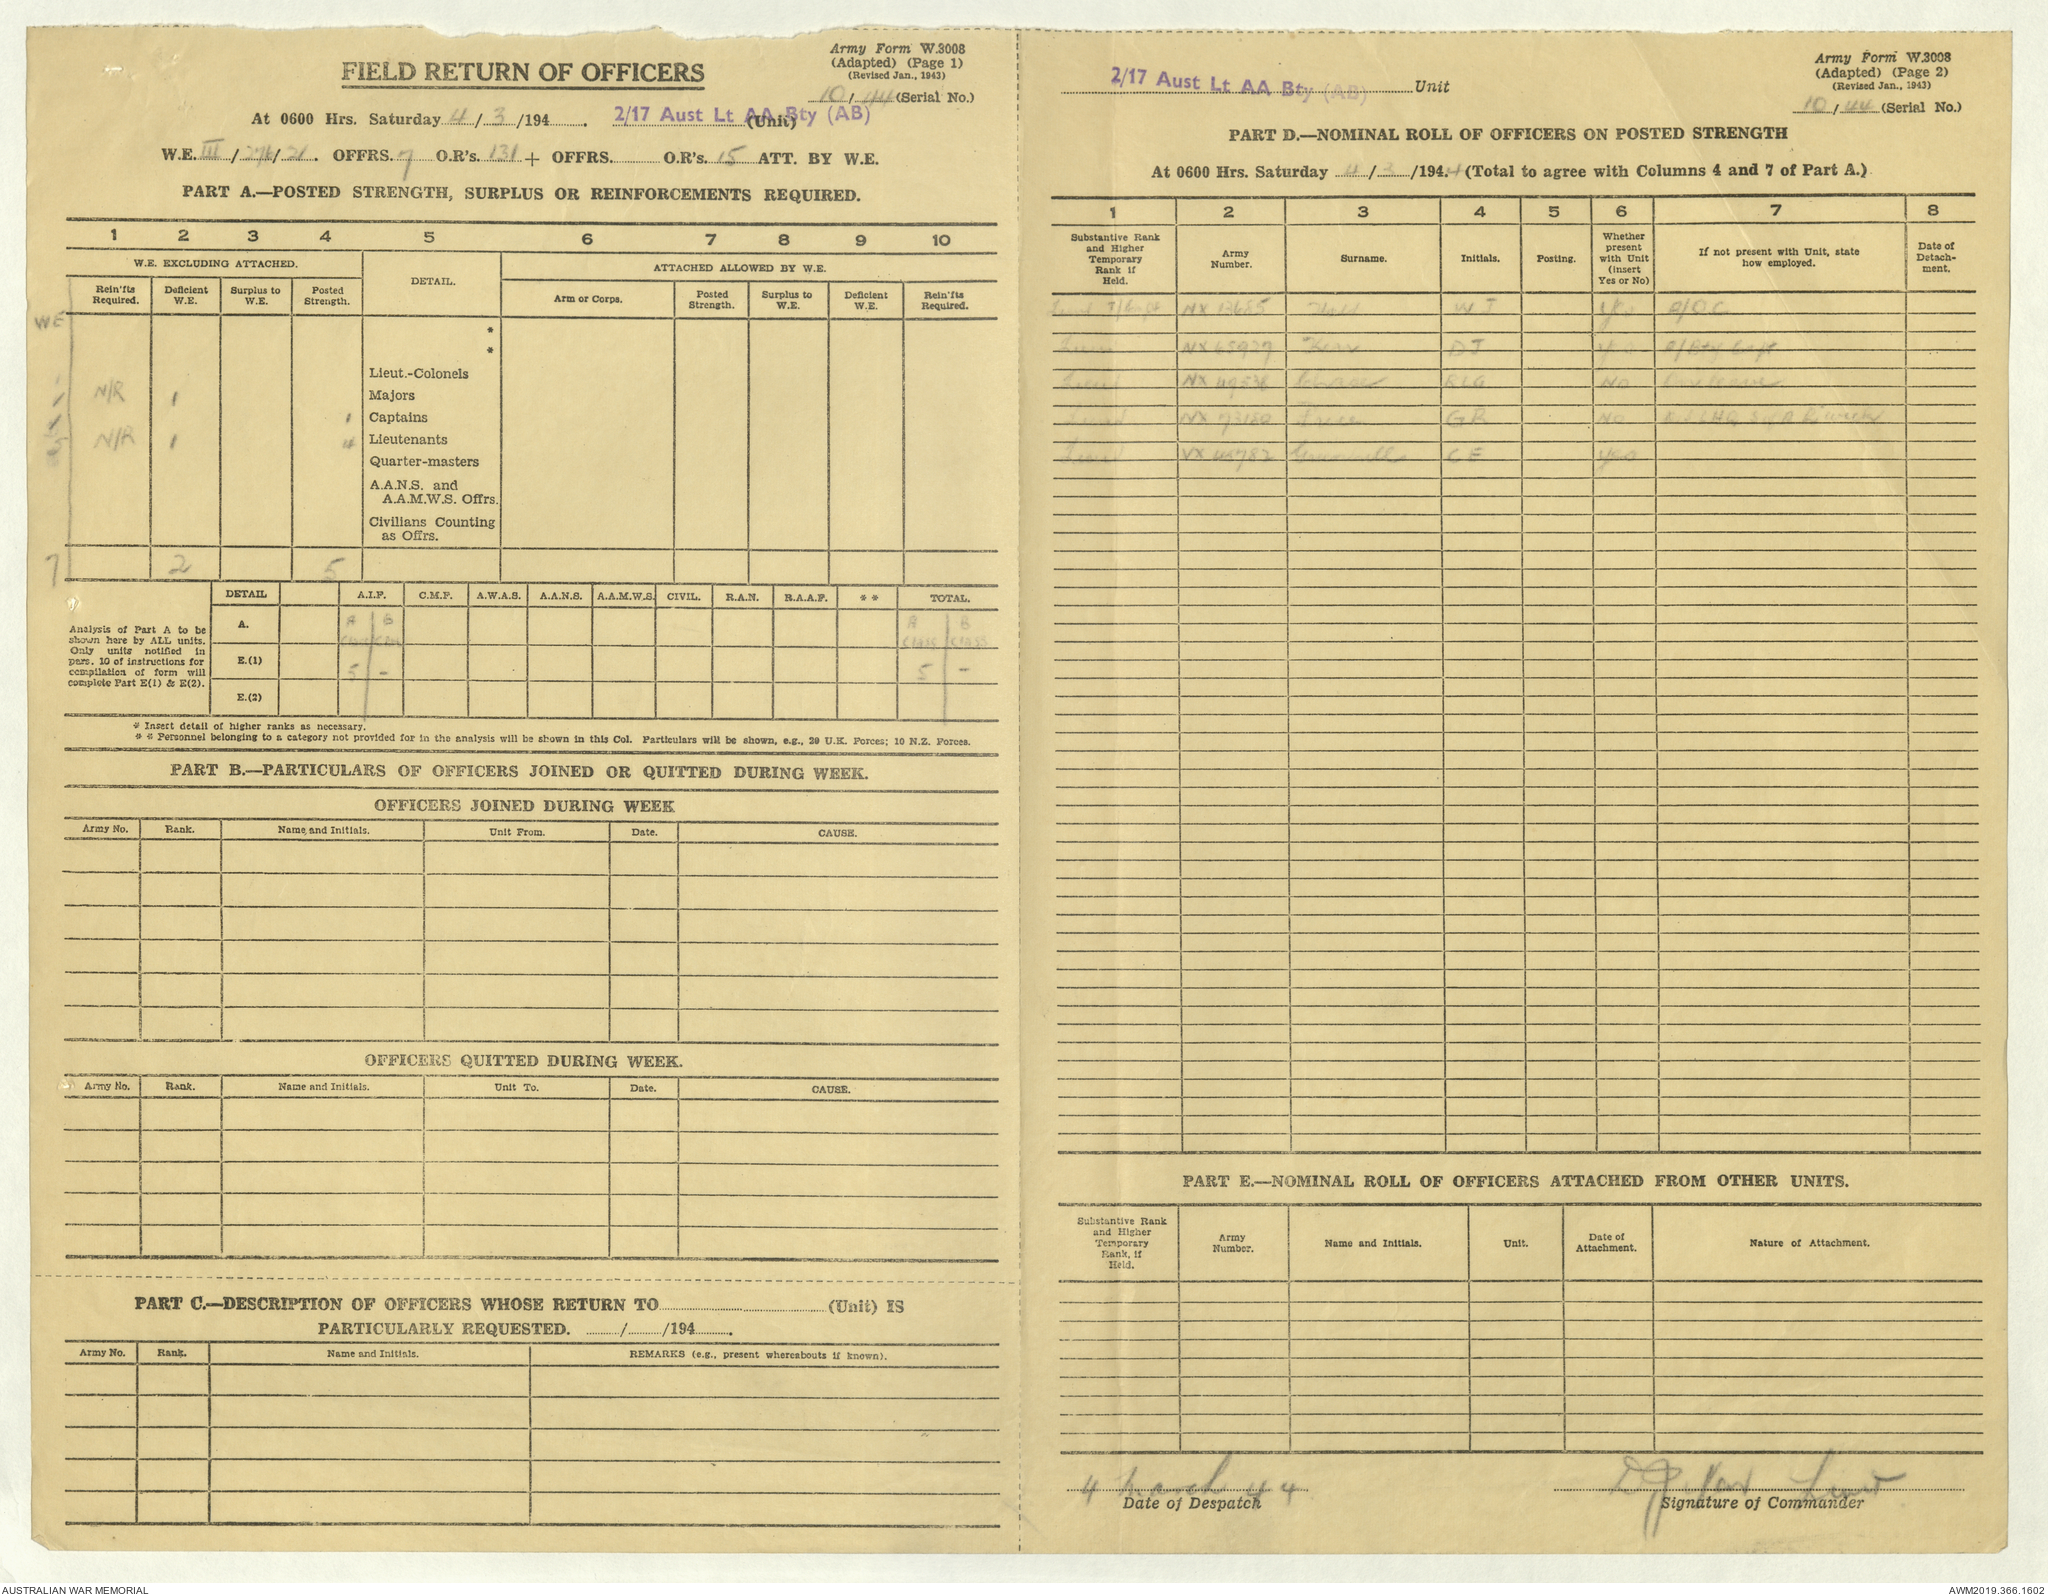 Army Form W.3008
(Adapted) (Page 1)
(Revised Jan., 1943)
FIELD RETURN OF OFFICERS
10/44 (Serial No.)
At 0600 Hrs. Saturday 4/3/194 2/17 Aust Lt AA Bty (AB) (Unit)
W.E. III/276/21. OFFRS. 7 O.R's. 131 + OFFRS. O.R's. 15 ATT. BY W.E.
PART A.—POSTED STRENGTH, SURPLUS OR REINFORCEMENTS REQUIRED.
1 2 3 4 5 6 7 8 9 10
W.E. EXCLUDING ATTACHED. DETAIL. ATTACHED ALLOWED BY W.E.
Rein'fts Required. Deficient W.E. Surplus to W.E. Posted Strength. Arm or Corps. Posted Strength. Surplus to W.E. Deficient W.E. Rein'fts Required.
WE
*
*
Lieut.-Colonels
N/R 1 Majors
1 Captains
5 N/R 1 4 Lieutenants
Quarter-masters
A.A.N.S. and
A.A.M.W.S. Offrs.
Civilians Counting
as Offrs.
7 2 5
DETAIL A.I.F. C.M.F. A.W.A.S. A.A.N.S. A.A.M.W.S. CIVIL. R.A.N. R.A.A.F. * * TOTAL.
Analysis of Part A to be
shown here by ALL units.
Only units notified in
para. 10 of instructions for
compilation of form will
complete Part E(1) & E(2).
A. A CLASS B CLASS A CLASS B CLASS
E.(1) 5 - 5 -
E.(2)
* Insert detail of higher ranks as necessary.
* * Personnel belonging to a category not provided for in the analysis will be shown in this Col. Particulars will be shown, e.g., 20 U.K. Forces; 10 N.Z. Forces.
PART B.—PARTICULARS OF OFFICERS JOINED OR QUITTED DURING WEEK.
OFFICERS JOINED DURING WEEK
Army No. Rank. Name and Initials. Unit From. Date. CAUSE.
OFFICERS QUITTED DURING WEEK.
Army No. Rank. Name and Initials. Unit To. Date. CAUSE.
PART C.—DESCRIPTION OF OFFICERS WHOSE RETURN TO (Unit) IS
PARTICULARLY REQUESTED. / /194 .
Army No. Rank. Name and Initials. REMARKS (e.g., present whereabouts if known).
Army Form W.3008
(Adapted) (Page 2)
(Revised Jan., 1943)
2/17 Aust Lt AA Bty (AB) Unit
10/44 (Serial No.)
PART D.—NOMINAL ROLL OF OFFICERS ON POSTED STRENGTH
At 0600 Hrs. Saturday 4/3/194.4 (Total to agree with Columns 4 and 7 of Part A.)
1 2 3 4 5 6 7 8
Substantive Rank and Higher Temporary Rank if Held. Army Number. Surname. Initials. Posting. Whether present with Unit (insert Yes or No) If not present with Unit, state how employed. Date of Detachment.
Lieut T/Capt NX 13685 WJ Yes A/OC
Lieut NX 65927 Kerr DJ Yes A/Bty Capt
Lieut RLG No
Lieut GR No
Lieut VX 45782 CE Yes
PART E.—NOMINAL ROLL OF OFFICERS ATTACHED FROM OTHER UNITS.
Substantive Rank and Higher Temporary Rank, if Held. Army Number. Name and Initials. Unit. Date of Attachment. Nature of Attachment.
4 March 44
Date of Despatch
DJ Kerr Lieut
Signature of Commander
AUSTRALIAN WAR MEMORIAL
AWM2019.366.1602